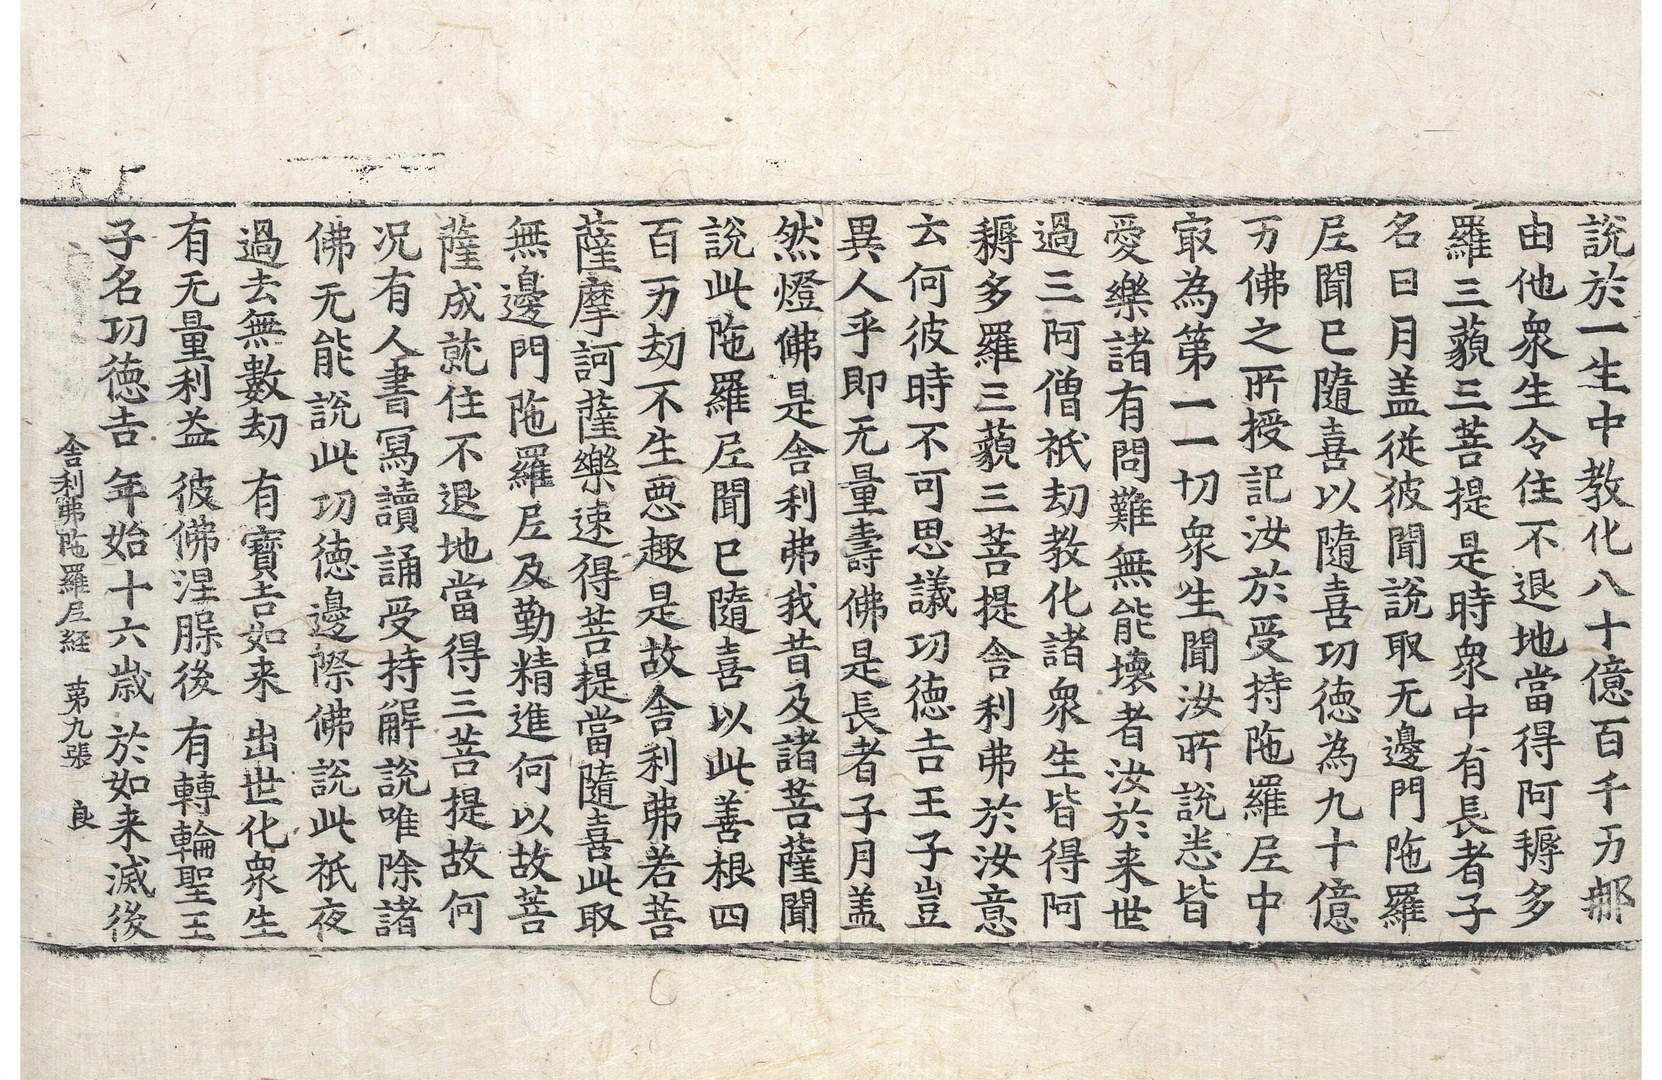 說於一生中教化八十億百千万那
由他衆生令住不退地當得阿耨多
羅三藐三菩提是時衆中有長者子
名曰月盖從彼聞說取无邊門陁羅
𡰱聞已隨喜以隨喜功德為九十億
万佛之所授記汝於受持陁羅𡰱中
㝡為第一一切衆生聞汝所說悉皆
愛樂諸有問難無能壞者汝於来世
過三阿僧祇劫教化諸衆生皆得阿
耨多羅三藐三菩提舎利弗於汝意
云何彼時不可思議功德吉王子豈
異人乎即无量壽佛是長者子月盖
然燈佛是舎利弗我昔及諸菩薩聞
說此陁羅𡰱聞已隨喜以此善根四
百万劫不生惡趣是故舎利弗若菩
薩摩訶薩樂速得菩提當隨喜此取
無邊門陁羅𡰱及勤精進何以故菩
薩成就住不退地當得三菩提故何
况有人書寫讀誦受持解說唯除諸
佛无能說此功德邊際佛說此祇夜
過去無數劫 有寶吉如来 出世化衆生
有无量利益 彼佛涅槃後 有轉輪聖王
子名功德吉 年始十六歲 於如来滅後
舎利弗陁羅𡰱経 第九張 良